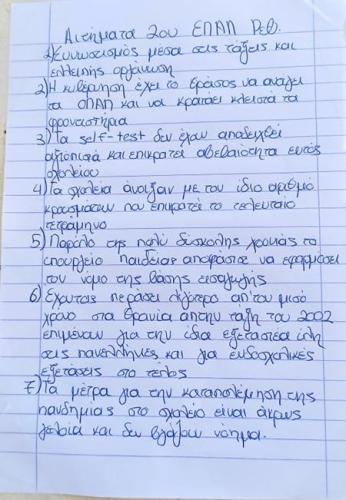 Αιτήματα 2ου ΕΠΑΛ Ρεθ.
1) Συνωστισμός μέσα στις τάξεις και
ελλειπής οργάνωση
2) Η κυβέρνηση έχει το θράσος να ανοίγει
τα ΟΠΑΠ και να κρατάει κλειστά τα
φροντιστήρια
3) Τα self-test δεν έχουν αποδειχθεί
αξιόπιστα και επικρατεί αβεβαιότητα εντός
σχολείου
4) Τα σχολεία άνοιξαν με τον ίδιο αριθμό
κρουσμάτων που επικρατεί το τελευταίο
τετράμηνο
5) Παρόλο της πολύ δύσκολης χρονιάς το
υπουργείο παιδείας αποφάσισε να εφαρμόσει
τον νόμο της βάσης εισαγωγής
6) Έχοντας περάσει λιγότερο απ'τον μισό
χρόνο στα θρανία απ'την τάξη του 2002
επιμένουν για την ίδια εξεταστέα ύλη
στις πανελλήνιες και για ενδοσχολικές
εξετάσεις στο τέλος
7) Τα μέτρα για την καταπολέμηση της
πανδημίας στο σχολείο είναι άκρως
γελοία και δεν βγάζουν νόημα.